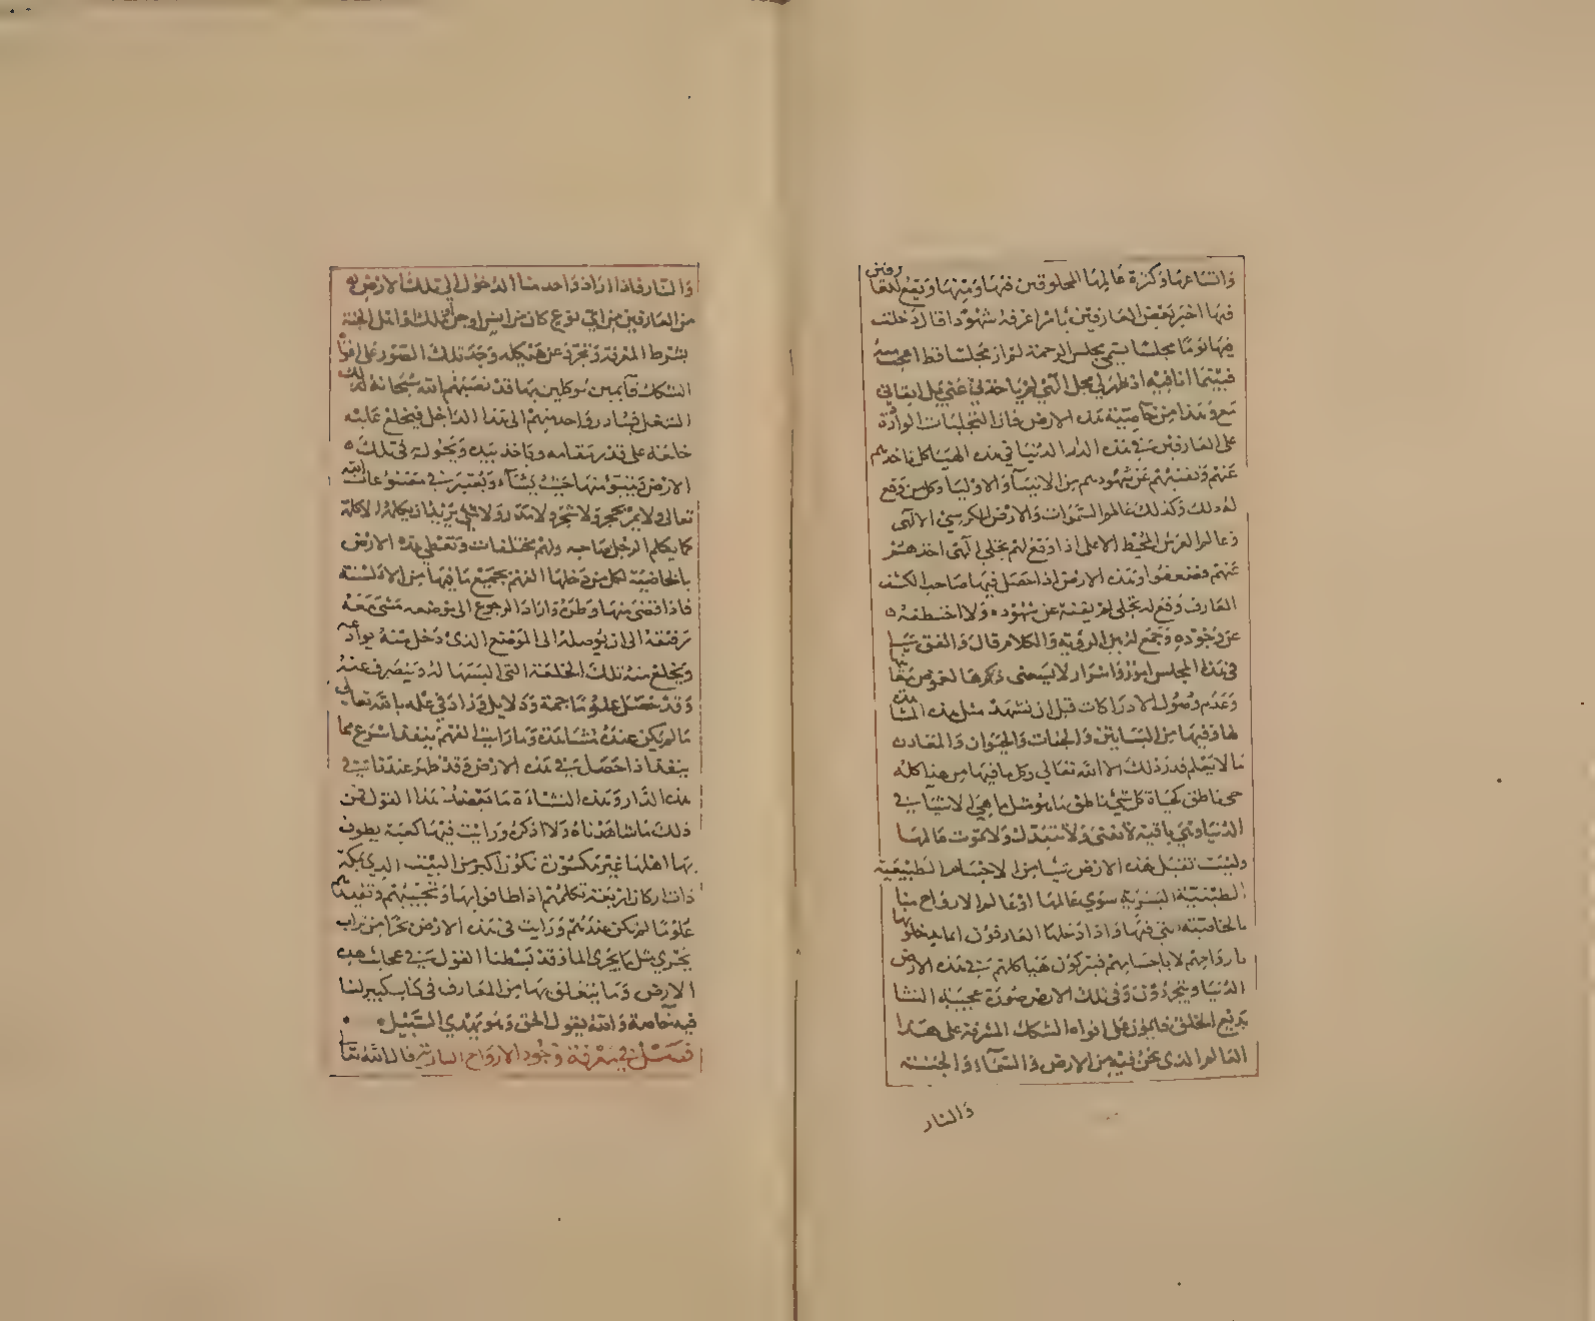 واتساعها وكثرة عالمها المخلوقين فيها ومنها ويقع للعارفين
فيها اخبر بعض العارفين بامر اعرفه شهودا قال دخلت
فيها يوما مجلسا يسمى مجلس الرحمة لم ار مجلسا قط اعجب منه
فبينما انا فيه اذ ظهر لي تجل الهي لم ياخذني عني بل ابقاني
معي وهذا من خاصية هذه الارض فان التجليات الواردة
على العارفين في هذه الدار الدنيا في هذه الهياكل تاخذهم
عنهم وتفنيهم عن شهودهم من الانبيا والاوليا وكل من وقع
له ذلك وكذلك عالم السموات والارض والكرسي الالهي
وعالم العرش المحيط الاعلى اذا وقع لهم تجلي الهى اخذهم
عنهم وصعقوا وهذه الارض اذا حصل فيها صاحب الكشف
العارف ووقع له تجلى لم يفنه عن شهوده ولا اختطفه
عن وجوده وجمع له بين الروية والكلام قال واتفق
في هذا المجلس امور واسرار لا يسعنى ذكرها لغموض
وعدم وصول الادراكات قبل ان تشهد مثل هذه المشاهد
لها وفيها من البساتين والجنات والحيوان والمعادن
ما لا يعلم قدر ذلك الا الله تعالى وكل ما فيها من هذا كله
حي ناطق كحياة كل حي ناطق ما هو مثل ما هي الاشيا في
الدنيا وهي باقية لا تفنى ولا تتبدل ولا يموت عالمها
وليست تقبل هذه الارض شيا من الاجسام الطبيعية
الطينية البشرية سوى عالمها او عالم الارواح منا
بالخاصية فيها واذا دخلها العارفون انما يدخلونها
بارواحهم لا باجسامهم فيتركون هياكلهم في هذه الارض
الدنيا ويتجردون وفي تلك الارض صورة عجيبة النشا
بديع الخلق قايمون على افواه السكك المشرفة على هذا
العالم الذى نحن فيه من الارض والسماء والجنة
والنار
والنار فاذا اراد واحد منا الدخول الى تلك الارض
من العارفين من اي نوع كان من انس او جن او ملك او اهل الجنة
بشرط المعرفة وتجرد عن هيكله وجد تلك الصور على افواه
السكك قايمين موكلين بها قد نصبهم الله سبحانه لذلك
الشغل فيبادر واحد منهم الى هذا الداخل فيخلع عليه
خلعة على قدر مقامه وياخذ بيده ويجول به في تلك
الارض ويتبوء منها حيث يشاء ويعتبر في مصنوعات الله
تعالى ولا يمر بحجر ولا شجر ولا مدر ولا شي يريد ان يكلمه الا كلمه
كما يكلم الرجل صاحبه ولهم مختلفات وتعطي هذه الارض
بالخاصية لكل من دخلها الفهم بجميع ما فيها من الالسنة
فاذا قضى منها وطره واراد الرجوع الى موضعه مشى معه
رفيقه الى ان يوصله الى الموضع الذى دخل منه يوادعه
ويخلع منه تلك الخلعة التى البسها له وينصرف عنه
وقد حصل علوما جمة ودلايل وزاد في علمه بالله تعالى
ما لم يكن عنده مشاهدة وما رايت الفهم ينفذ اسرع مما
ينفذ اذا حصل في هذه الارض وقد ظهر عندنا في
هذه الدار وهذه النشاة ما يعضد هذا القول فمن
ذلك ما شاهدناه ولا اذكره ورايت فيها كعبة يطوف
بها اهلها غير مكسوة تكون اكبر من البيت الذي بمكة
ذات اركان اربعة تكلمهم اذا طافوا بها وتحييهم وتفيدهم
علوما لم تكن عندهم ورايت في هذه الارض بحرا من تراب
يجري مثل ما يجرى الما وقد بسطنا القول في عجايب هذه
الارض وما يتعلق بها من المعارف في كتاب كبير لنا
فيه خاصة والله يقول الحق وهو يهدي السبيل
فصل في معرفة وجود الارواح قال الله تعالى